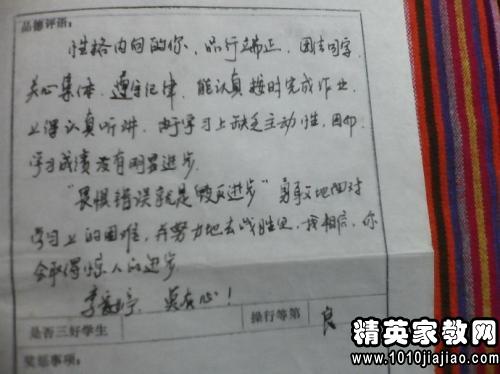 品德评语:
性格内向的你，品行端正，团结同学，
关心集体，遵守纪律，能认真按时完成作业，
上课认真听讲，由于学习上缺乏主动性，因而
学习成绩没有明显进步。
"畏惧错误就是毁灭进步"勇敢地面对
学习上的困难，并努力地去战胜它，我相信，你
会取得惊人的进步
李 婷，莫灰心！
是否三好学生
操行等第
良
奖惩事项:
精英家教网
www.1010jiajiao.com